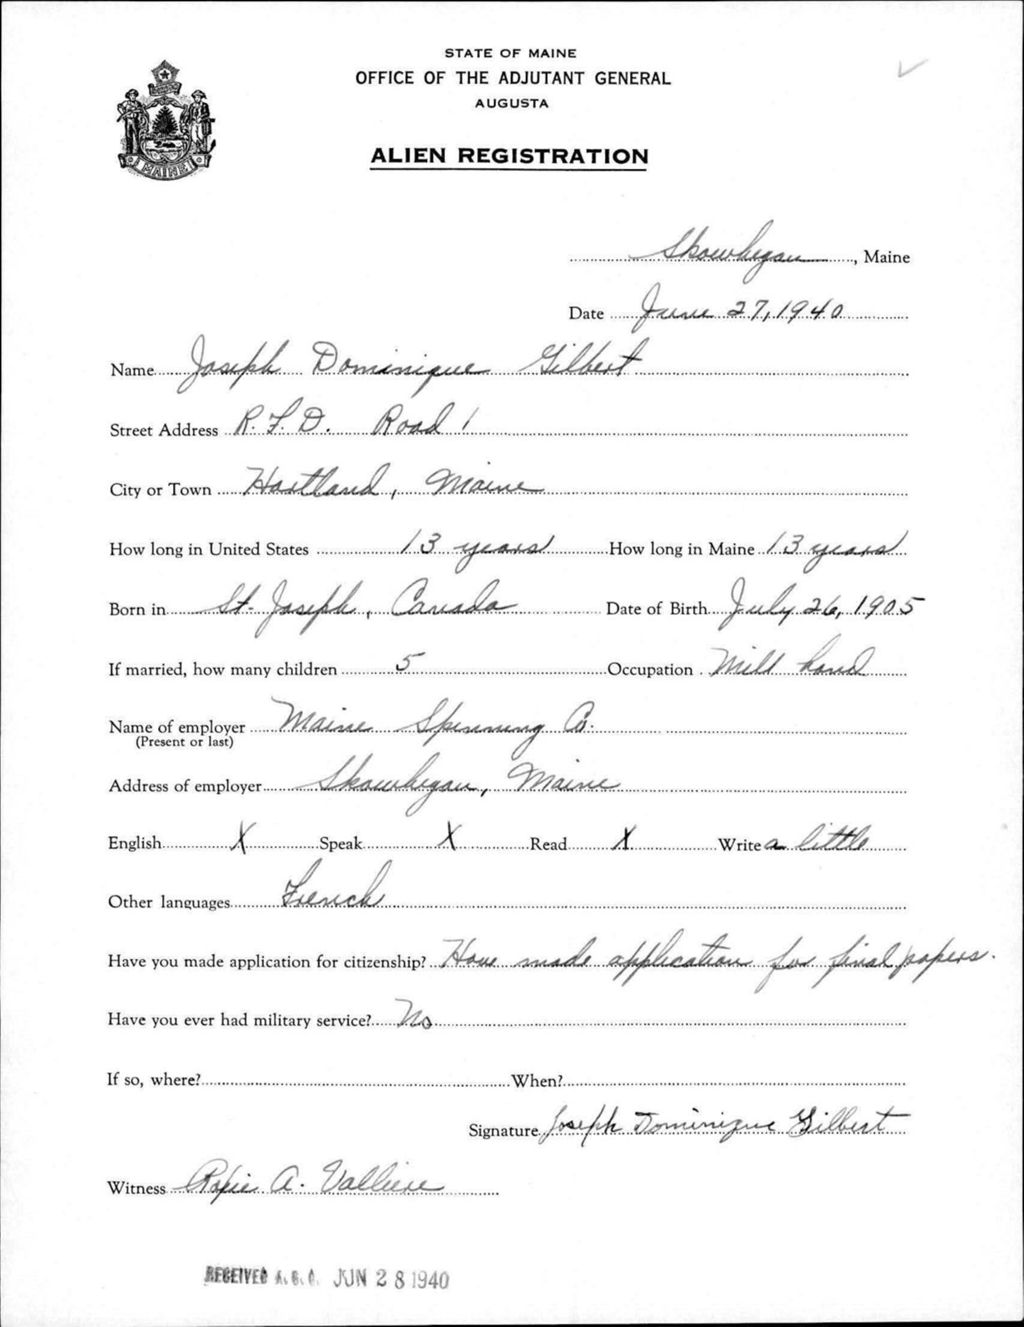 STATE OF MAINE
OFFICE OF THE ADJUTANT GENERAL
AUGUSTA
ALIEN REGISTRATION
MAINE
Skowhegan, Maine
Date June 27, 1940
Name Joseph Dominique Gilbert
Street Address R.F.D. Road 1
City or Town Hartland, Maine
How long in United States 13 years How long in Maine 13 years
Born in St. Joseph, Canada Date of Birth July 26, 1905
If married, how many children 5 Occupation Mill hand
Name of employer Maine Spinning Co.
(Present or last)
Address of employer Skowhegan, Maine
English X Speak X Read X Write a little
Other languages French
Have you made application for citizenship? Have made application for final papers.
Have you ever had military service? No
If so, where? When?
Signature Joseph Dominique Gilbert
Witness A. Valliere
RECEIVED A.G.O. JUN 28 1940